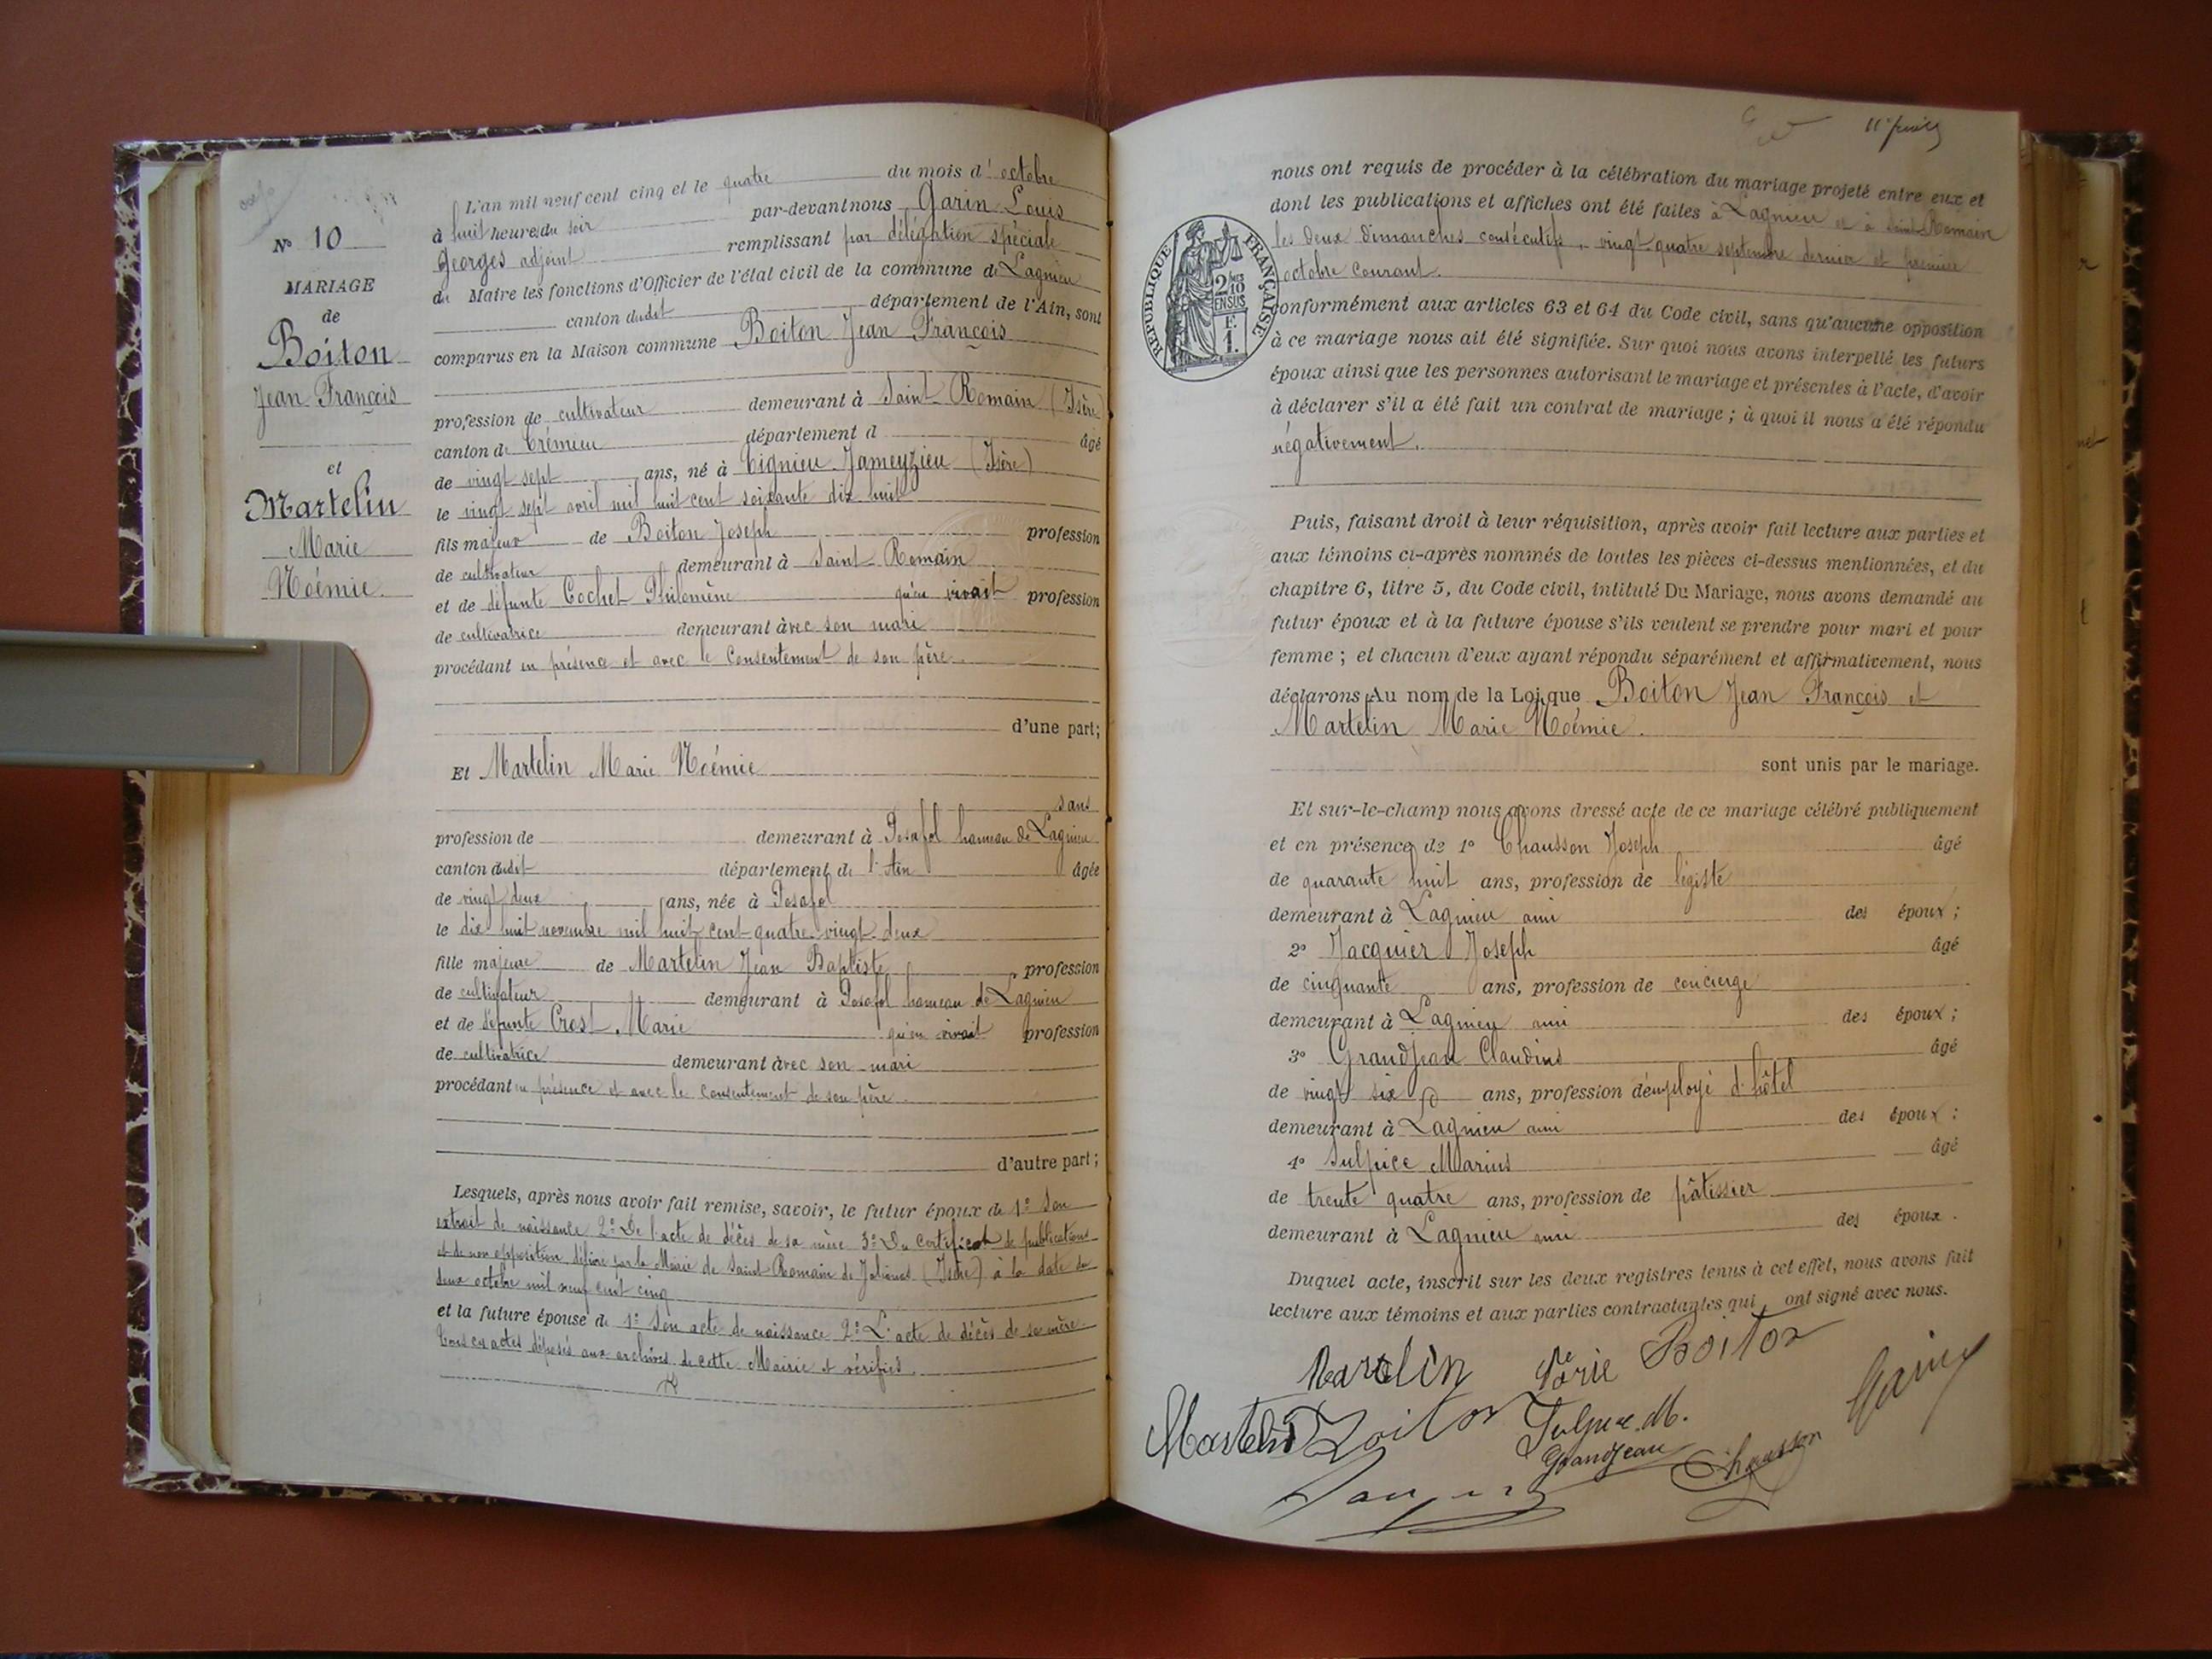 N° 10
MARIAGE
de
Boiton
Jean François
et
Martelin
Marie
Noémie.
L'an mil neuf cent cinq et le quatre du mois d'octobre
à huit heures du soir par-devant nous Garin Louis
Georges adjoint remplissant par délégation spéciale
du Maire les fonctions d'Officier de l'état civil de la commune de Lagnieu
canton dudit département de l'Ain, sont
comparus en la Maison commune Boiton Jean François
profession de cultivateur demeurant à Saint-Romain (Isère)
canton de Crémieu département d âgé
de vingt sept ans, né à Tignieu-Jameyzieu (Isère)
le vingt sept avril mil huit cent soixante dix huit
fils majeur de Boiton Joseph profession
de cultivateur demeurant à Saint-Romain
et de défunte Cochet Philomène qu'en vivait profession
de cultivatrice demeurant avec son mari
procédant en présence et avec le consentement de son père.
d'une part;
Et Martelin Marie Noémie
sans
profession de demeurant à Posafol hameau de Lagnieu
canton dudit département de l'Ain âgée
de vingt deux ans, née à Posafol
le dix huit novembre mil huit cent quatre-vingt-deux
fille majeure de Martelin Jean Baptiste profession
de cultivateur demeurant à Posafol hameau de Lagnieu
et de défunte Crost Marie qu'en vivait profession
de cultivatrice demeurant avec son mari
procédant en présence et avec le consentement de son père.
d'autre part;
Lesquels, après nous avoir fait remise, savoir, le futur époux de 1° Son
extrait de naissance 2° De l'acte de décès de sa mère 3° Du Certificat de publications
et de non opposition délivré par la Mairie de Saint-Romain de Jalionas (Isère) à la date du
deux octobre mil neuf cent cinq
et la future épouse de 1° Son acte de naissance 2° L'acte de décès de sa mère.
Tous ces actes déposés aux archives de cette Mairie et vérifiés.
nous ont requis de procéder à la célébration du mariage projeté entre eux et
dont les publications et affiches ont été faites à Lagnieu et à Saint-Romain
les deux dimanches consécutifs, vingt-quatre septembre dernier et premier
octobre courant.
RÉPUBLIQUE FRANÇAISE
2/10
EN SUS
F.
1.
conformément aux articles 63 et 64 du Code civil, sans qu'aucune opposition
à ce mariage nous ait été signifiée. Sur quoi nous avons interpellé les futurs
époux ainsi que les personnes autorisant le mariage et présentes à l'acte, d'avoir
à déclarer s'il a été fait un contrat de mariage ; à quoi il nous a été répondu
négativement.
Puis, faisant droit à leur réquisition, après avoir fait lecture aux parties et
aux témoins ci-après nommés de toutes les pièces ci-dessus mentionnées, et du
chapitre 6, titre 5, du Code civil, intitulé Du Mariage, nous avons demandé au
futur époux et à la future épouse s'ils veulent se prendre pour mari et pour
femme ; et chacun d'eux ayant répondu séparément et affirmativement, nous
déclarons Au nom de la Loi que Boiton Jean François et
Martelin Marie Noémie.
sont unis par le mariage.
Et sur-le-champ nous avons dressé acte de ce mariage célébré publiquement
et en présence de 1° Chausson Joseph âgé
de quarante huit ans, profession de légiste
demeurant à Lagnieu ami des époux ;
2° Jacquier Joseph âgé
de cinquante ans, profession de concierge
demeurant à Lagnieu ami des époux ;
3° Grandjean Claudius âgé
de vingt six ans, profession d'employé d'hôtel
demeurant à Lagnieu ami des époux ;
4° Sulpice Marius âgé
de trente quatre ans, profession de pâtissier
demeurant à Lagnieu ami des époux.
Duquel acte, inscrit sur les deux registres tenus à cet effet, nous avons fait
lecture aux témoins et aux parties contractantes qui ont signé avec nous.
Martelin Marie Boiton
Martelin Boiton Sulpice M. Garin
Grandjean Chausson